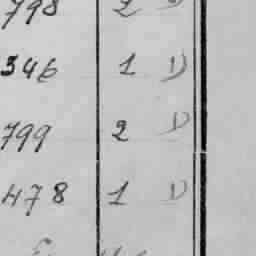 798 2 D
346 1 D
799 2 D
478 1 D